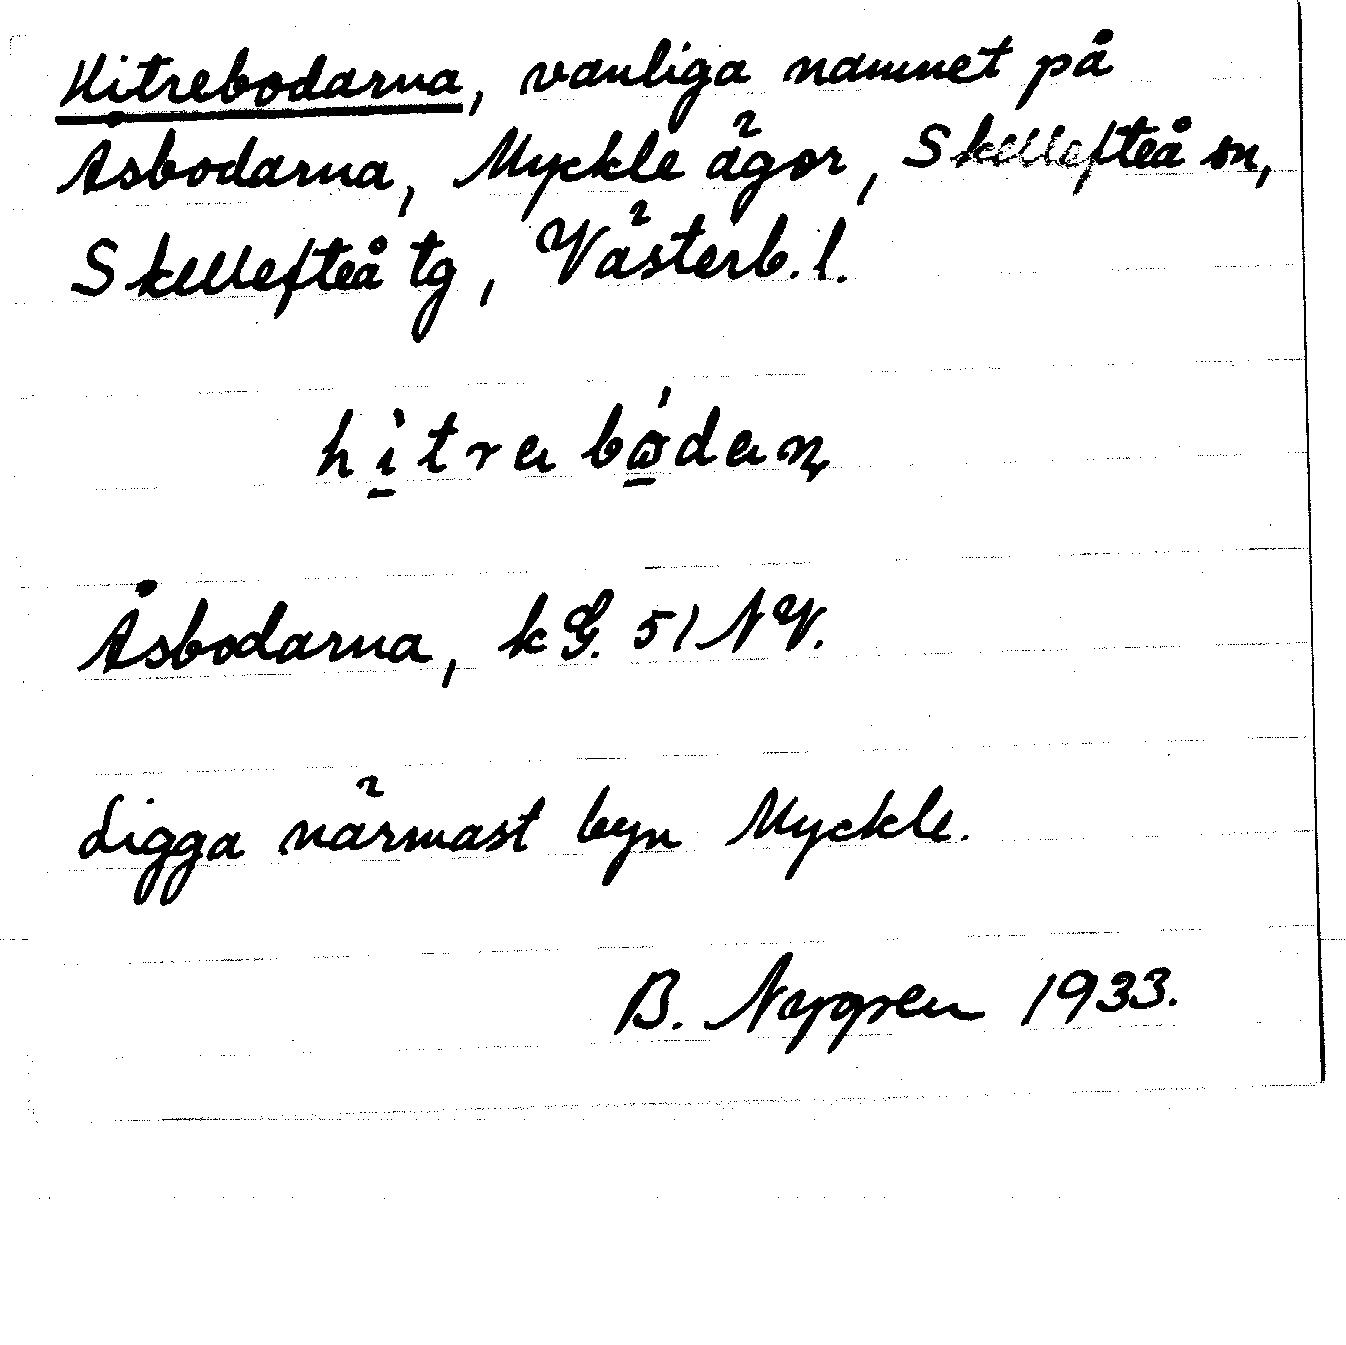 Hitrebodarna, vanliga namnet på
Åsbodarna, Myckle ägor, Skellefteå sn,
Skellefteå tg, Västerb. l.
Åsbodarna, kG. 51 NV.
Ligga närmast byn Myckle.
B. Nygren 1933.